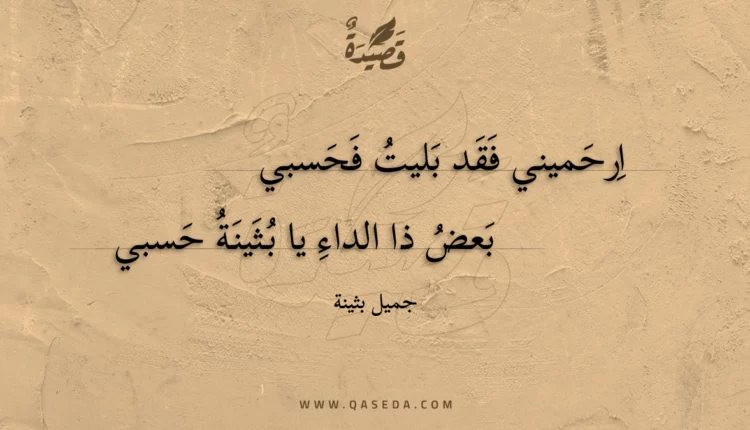 قَصِيدَةٌ
اِرحَميني فَقَد بَليتُ فَحَسبي
بَعضُ ذا الداءِ يا بُثَينَةُ حَسبي
جميل بثينة
WWW.QASEDA.COM